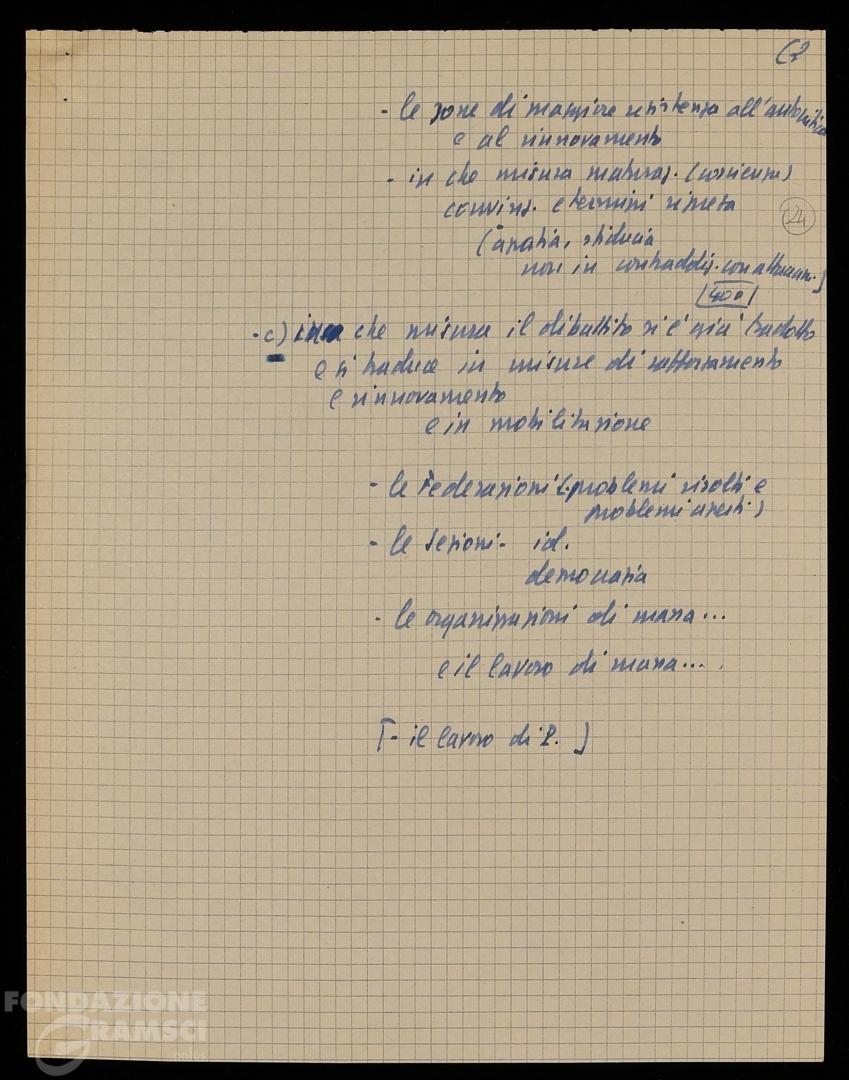 (2
- le zone di maggiore resistenza all'autocritica
e al rinnovamento
- in che misura maturaz. (
convinz. e termini
24
(apatia, sfiducia
non in contraddiz. con
400
- c) in che misura il dibattito si è già tradotto
e si traduce in misure di rafforzamento
e rinnovamento
e in mobilitazione
- le Federazioni (problemi risolti e
problemi aperti)
- le Sezioni - id.
democrazia
- le organizzazioni di massa...
e il lavoro di massa...
[- il lavoro di P. ]
FONDAZIONE
GRAMSCI
onlus